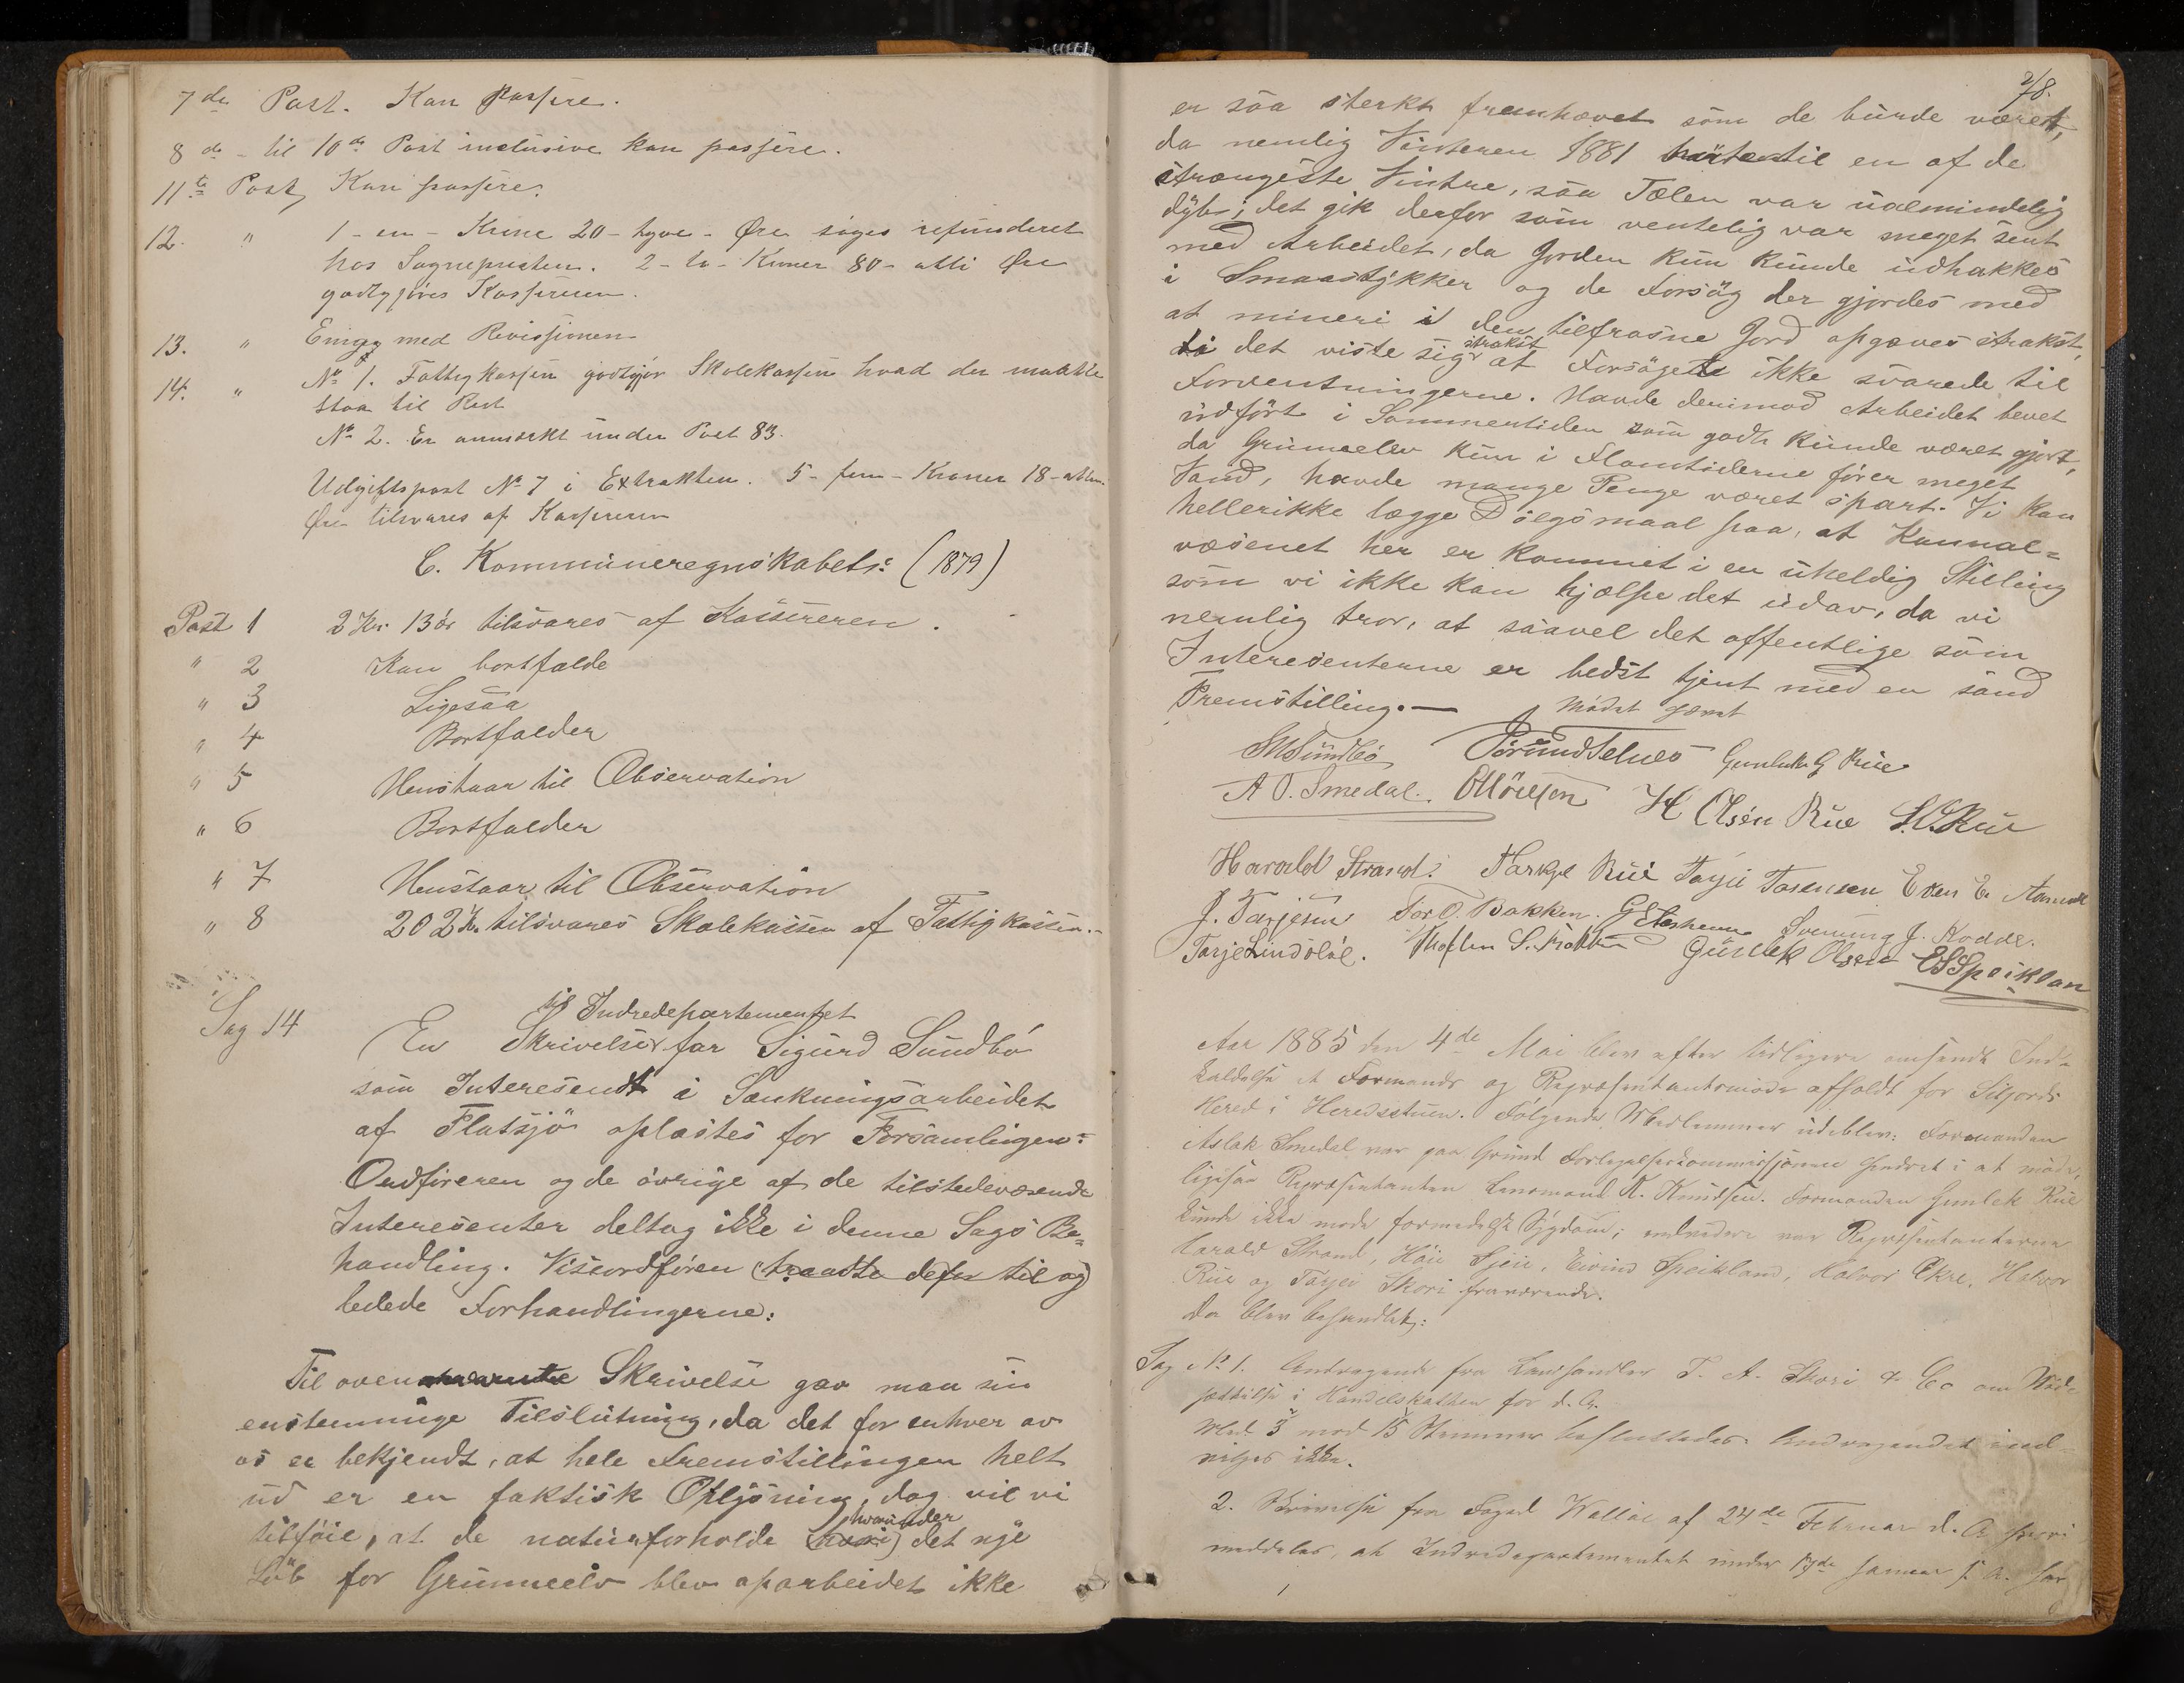 7de Post. Kan passere.
8de - til 10de Post inclusive kan passere.
11te Post, Kan passere.
12. " 1 - en - Krone 20 - tyve - Øre søges refunderet
hos Sognepresten. 2 - to - Kroner 80 - otti Øre
godtgjøres Kassereren.
13. " Enig med Revisjonen
14. " No 1. Fattigkassen godtgjør Skolekassen hvad der maatte
staa til Rest
No 2. Er anmærkt under Post 83.
Udgiftspost No 7 i Extrakten. 5 - fem - Kroner 18 - atten
Øre tilsvares af Kassereren
C. Kommuneregnskabets: (1879)
Post 1 2 Kr. 13 ør tilsvares af Kassereren.
" 2 Kan bortfalde
" 3 Ligesaa
" 4 Bortfalder
" 5 Henstaar til Observation
" 6 Bortfalder
" 7 Henstaar til Observation
" 8 202 Kr. tilsvares Skolekassen af Fattigkassen.
til Indredepartementet
Sag 14 En Skrivelse far Sigurd Sundbö
som Interesendt i Sænkningsarbeidet
af Flatsjö oplæstes for Forsamlingen:
Ordføreren og de övrige af de tilstedeværende
Interesenter deltog ikke i denne Sags Be=
handling. Viseordføren (traadte defor til og)
ledede Forhandlingerne:
Til oven Skrivelse gav man sin
enstemmige Tilslutning, da det for enhver av
os er bekjendt, at hele Fremstillingen helt
ud er en faktisk Oplysning, dog vil vi
hvorunder
tilføie, at de naturforholde det nye
Löb for Grunneelv blev oparbeidet ikke
278.
er saa sterkt fremhævet som de burde været,
da nemlig Vinteren 1881 hørte til en af de
strængeste Vintre, saa Tælen var ualmindelig
dyb; det gik derfor som ventelig var meget sent
med Arbeidet, da Jorden kun kunde udhakkes
i Smaastykker og de Forsög der gjordes med
at minere i den tilfrosne Jord opgaves strakst,
strakst
ti det viste sig at Forsøgete ikke svarede til
Forventningerne. Havde derimod Arbeidet bevet
udført i Sommertiden som godt kunde været gjort,
da Grunneelv kun i Flomtiderne fører meget
Vand, havde mange Penge været spart. Vi kan
hellerikke lægge Dølgsmaal paa, at Kannal=
væsenet her er kommet i en uheldig Stilling
som vi ikke kan hjælpe det udav, da vi
nemlig tror, at saavel det offentlige som
Interesenterne er bedst tjent med en sand
Fremstilling. — Mödet hævet
SHSundbö Gunleik G Rue
A O. Smedal. H Olsén Rue S.O.Rue
Harald Strand. Tarkjel Rue Tarjei Torsensen Even E.
J. Tarjesen Tor O. Bakken. Svenung J. Rodde.
Tarje Lindsløl. Gunlek Olsen ESSpeiklan
Aar 1885 den 4de Mai blev efter tidligere omsendt Ind=
kaldelse et Formands og Repræsentantsmøde afholdt for Siljords
Hered i Heredsstuen. Følgende Medlemmer udeblev: Formanden
Aslak Smedal var paa Grund Forligelseskommissjonen hindret i at møde,
ligesaa Repræsentanten Lensmand K. Knudsen. Formanden Gunlek Rue
kunde ikke møde formedelst Sygdom; endvidere var Repræsentanterne
Harald Strand, Höie Sjeie, Eivind Speikland, Halvor Ekre, Halvor
Rue og Tarjei Skori fraværende.
Da blev behandlet:
Sag No 1. Andragende fra Landhandler T. A. Skori & Co om Ned=
sættelse i Handelsskatten for d. A.
Med 3 mod 15 Stemmer besluttedes: Andragendet ind=
vilges ikke.
2. Skrivelse fra Foged Walløe af 24de Februar d. A. hvori
meddeles, at Indredepartementet under 17de Januar s. A. har